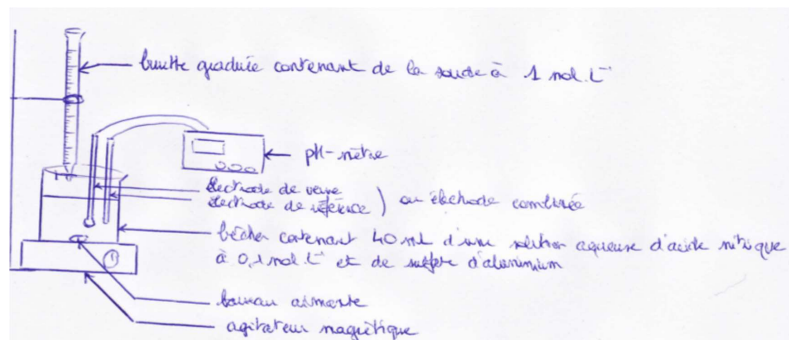 burette graduée contenant de la soude à 1 mol.L⁻
pH-mètre
électrode de verre
électrode de référence ) ou électrode combinée
bécher contenant 40 ml d'une solution aqueuse d'acide nitrique
à 0,1 mol.L⁻ et de sulfate d'aluminium
barreau aimanté
agitateur magnétique